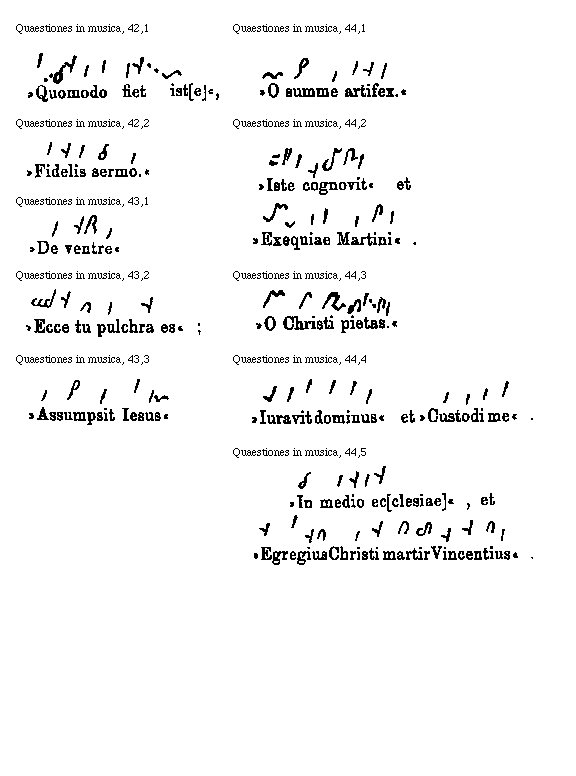 Quaestiones in musica, 42,1
»Quomodo fiet ist[e]«,
Quaestiones in musica, 42,2
»Fidelis sermo.«
Quaestiones in musica, 43,1
»De ventre«
Quaestiones in musica, 43,2
»Ecce tu pulchra es« ;
Quaestiones in musica, 43,3
»Assumpsit Iesus«
Quaestiones in musica, 44,1
»O summe artifex.«
Quaestiones in musica, 44,2
»Iste cognovit« et
»Exequiae Martini« .
Quaestiones in musica, 44,3
»O Christi pietas.«
Quaestiones in musica, 44,4
»Iuravit dominus« et »Custodi me« .
Quaestiones in musica, 44,5
»In medio ec[clesiae]« , et
»Egregius Christi martir Vincentius« .